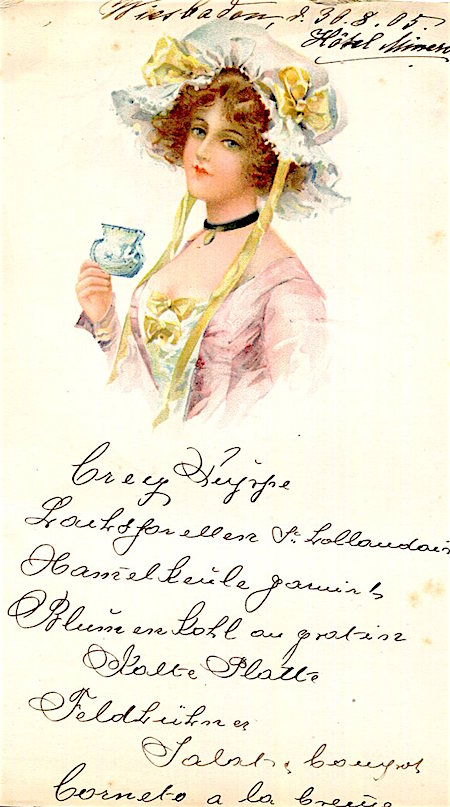 Wiesbaden, d. 30.8.05.
Hôtel Minerv
Crecy Suppe
Lachsforellen Sc. Hollandais
Hamelkeule garnirt
Blumenkohl au gratin
Kalte Platte
Feldhühner
Salat, Compot
Corneto a la Creme